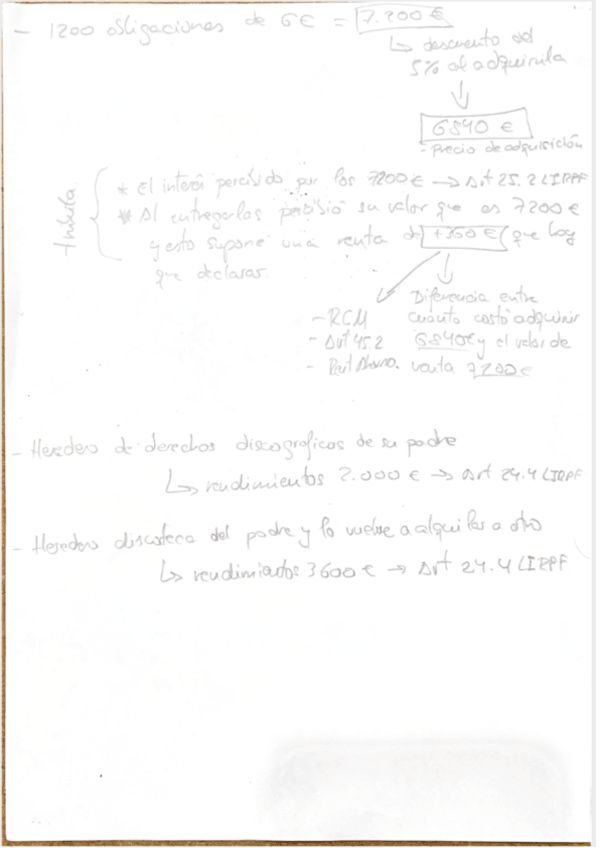 - 1200 obligaciones de 6€ = 7.200 €
↳ descuento del
5% al adquirirla
↓
6840 €
- Precio de adquisición
tributa
* El interés percibido por los 7200€ → Art 25.2 LIRPF
* Al entregarlas percibió su valor que es 7200€
y esto supone una renta de +360€ que hay
que declarar
- RCM
- Art 45.2
Diferencia entre
cuanto costó adquirir
6.840€ y el valor de
venta 7200€
- Heredero de derechos discográficos de su padre
↳ rendimientos 2.000 € → Art 24.4 LIRPF
- Heredero discoteca del padre y lo vuelve a alquilar a otro
↳ rendimientos 3600 € → Art 24.4 LIRPF